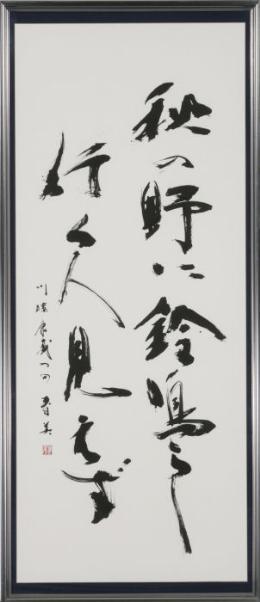 秋の野に鈴鳴らし
行く人見えず
川端康成の句 春美